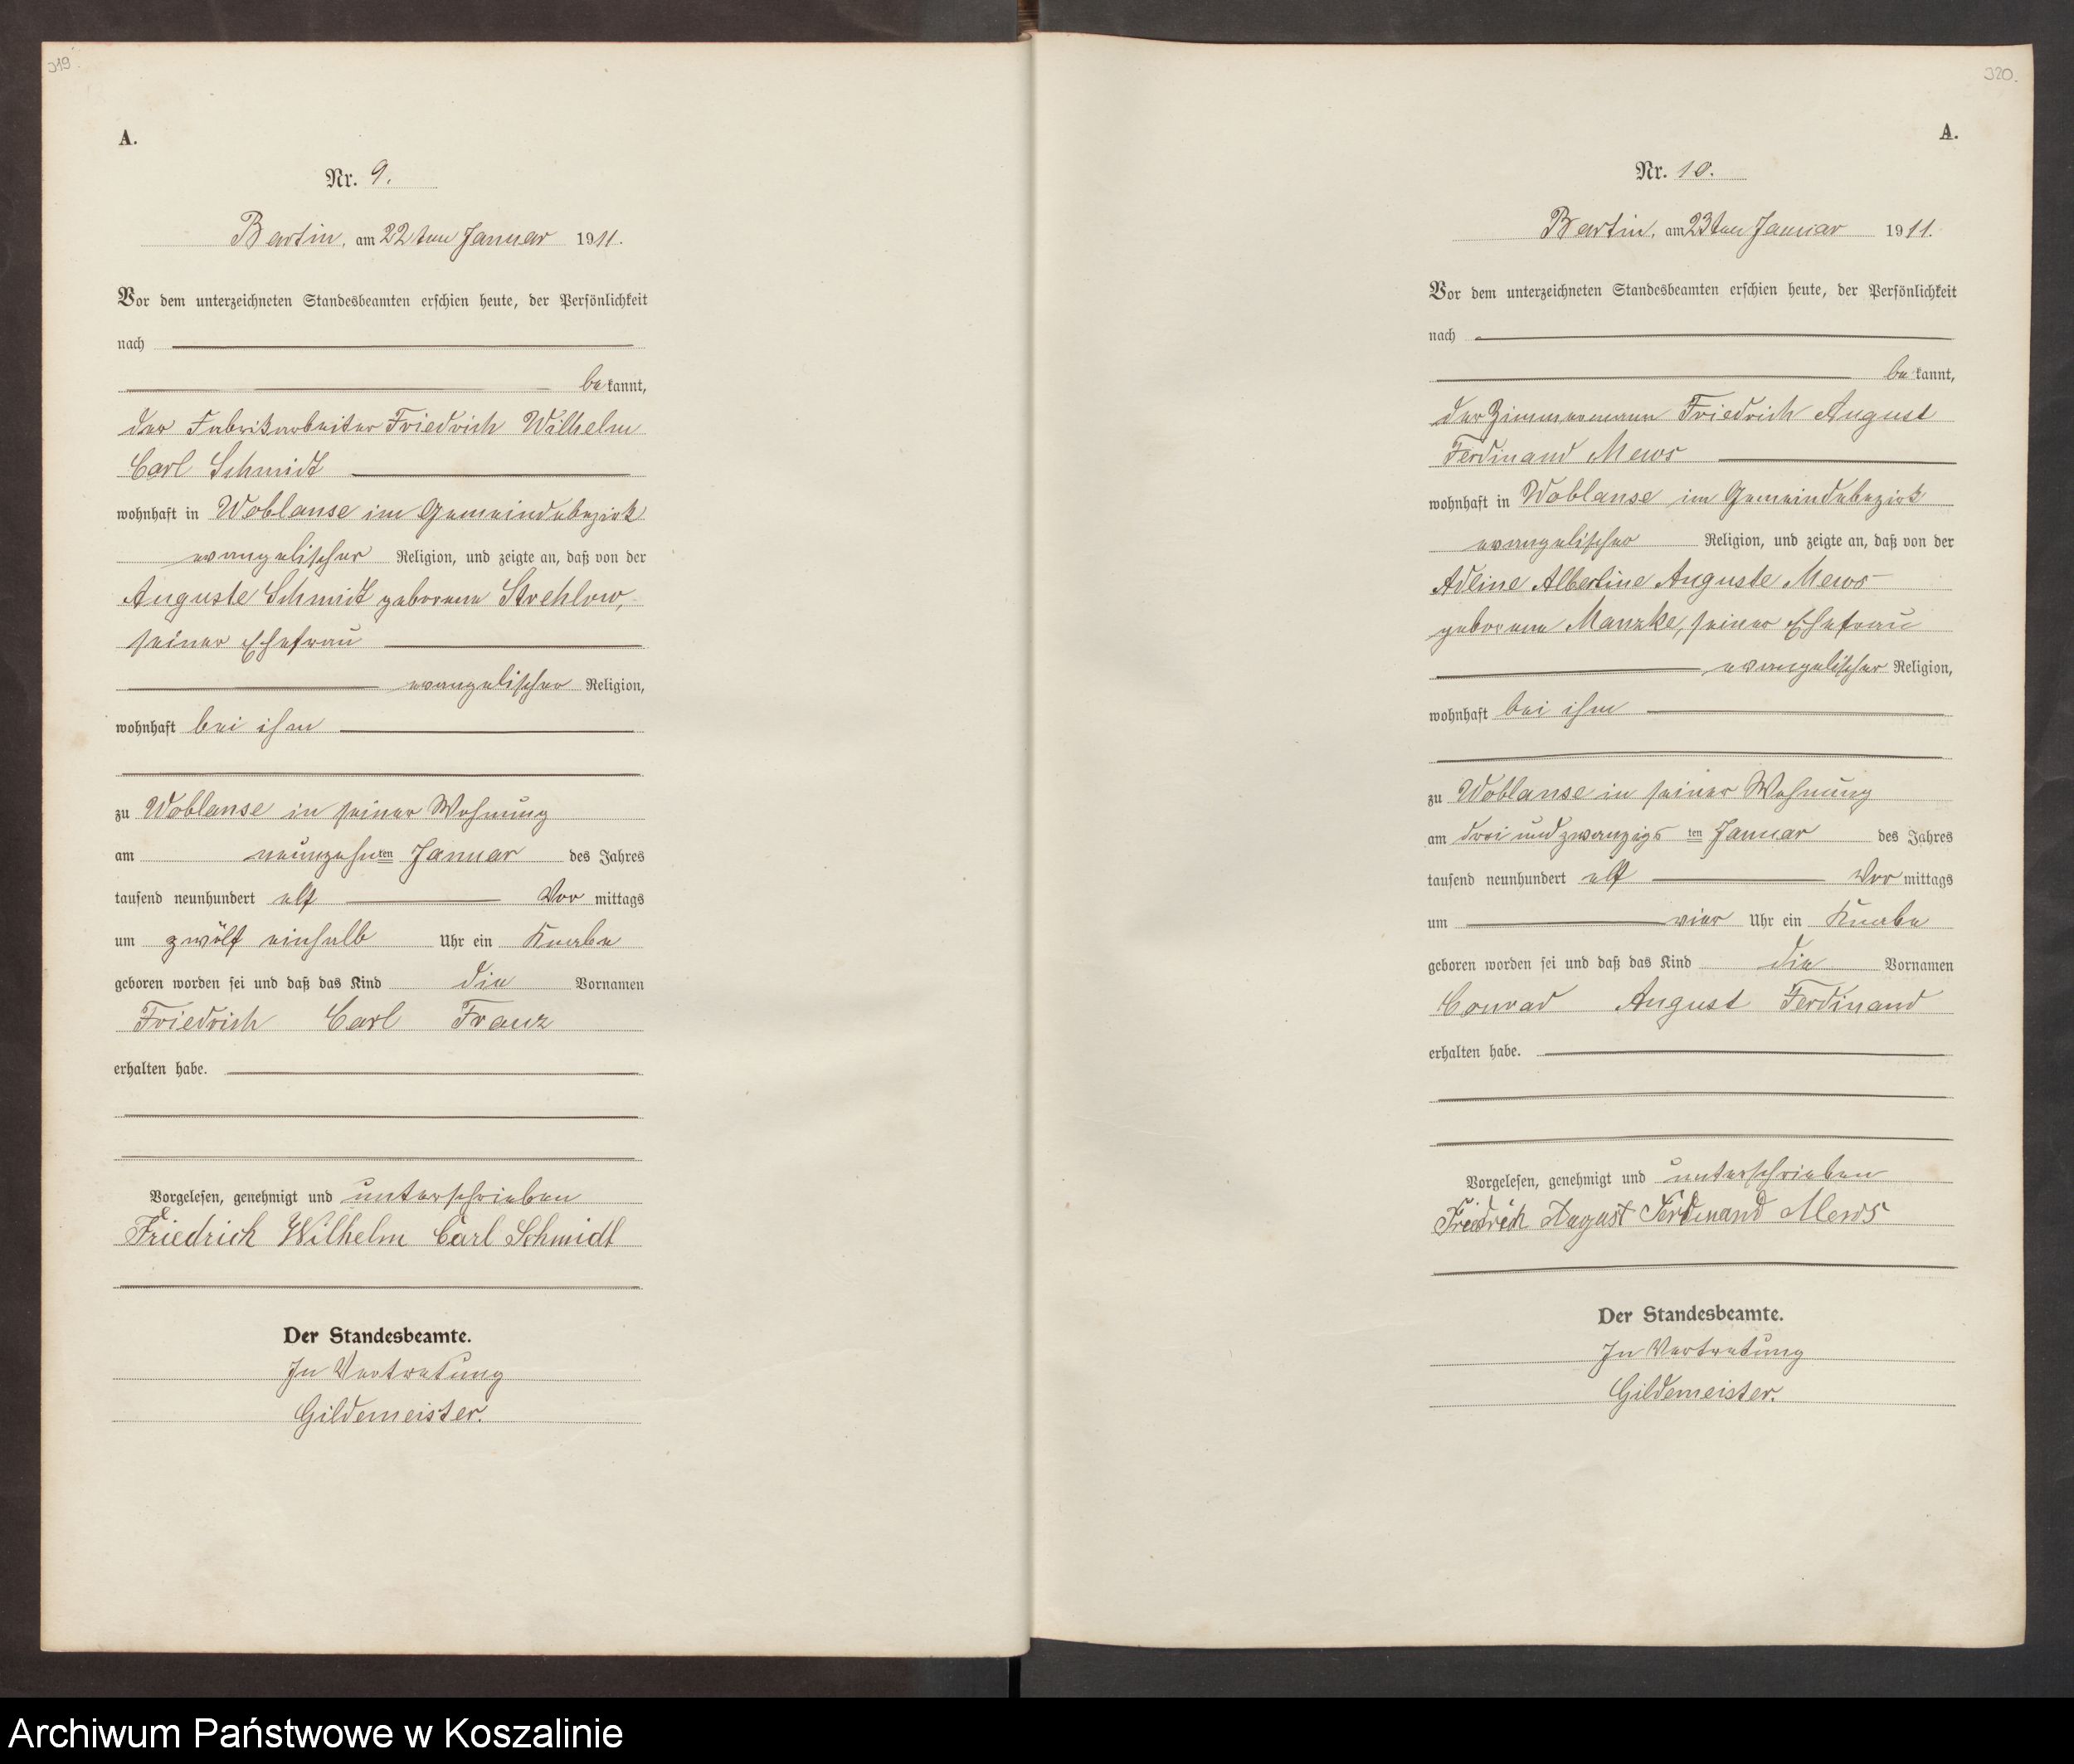 319.
A.
Nr. 9.
Bartin, am 22ten Januar 1911.
Vor dem unterzeichneten Standesbeamten erschien heute, der Persönlichkeit
nach
bekannt,
der Fabrikarbeiter Friedrich Wilhelm
Carl Schmidt
wohnhaft in Woblanse im Gemeindebezirk
evangelischer Religion, und zeigte an, daß von der
Auguste Schmidt geborene Strehlow,
seiner Ehefrau
evangelischer Religion,
wohnhaft bei ihm
zu Woblanse in seiner Wohnung
am neunzehnten Januar des Jahres
tausend neunhundert elf Vormittags
um zwölf einhalb Uhr ein Knabe
geboren worden sei und daß das Kind die Vornamen
Friedrich Carl Franz
erhalten habe.
Vorgelesen, genehmigt und unterschrieben
Friedrich Wilhelm Carl Schmidt
Der Standesbeamte.
In Vertretung
Gildemeister.
320.
A.
Nr. 10.
Bartin, am 23ten Januar 1911.
Vor dem unterzeichneten Standesbeamten erschien heute, der Persönlichkeit
nach
bekannt,
der Zimmermann Friedrich August
Ferdinand Mews
wohnhaft in Woblanse im Gemeindebezirk
evangelischer Religion, und zeigte an, daß von der
Adline Albertine Auguste Mews
geborene Manzke, seiner Ehefrau
evangelischer Religion,
wohnhaft bei ihm
zu Woblanse in seiner Wohnung
am drei und zwanzigsten Januar des Jahres
tausend neunhundert elf Vormittags
um vier Uhr ein Knabe
geboren worden sei und daß das Kind die Vornamen
Conrad August Ferdinand
erhalten habe.
Vorgelesen, genehmigt und unterschrieben
Friedrich August Ferdinand Mews
Der Standesbeamte.
In Vertretung
Gildemeister.
Archiwum Państwowe w Koszalinie